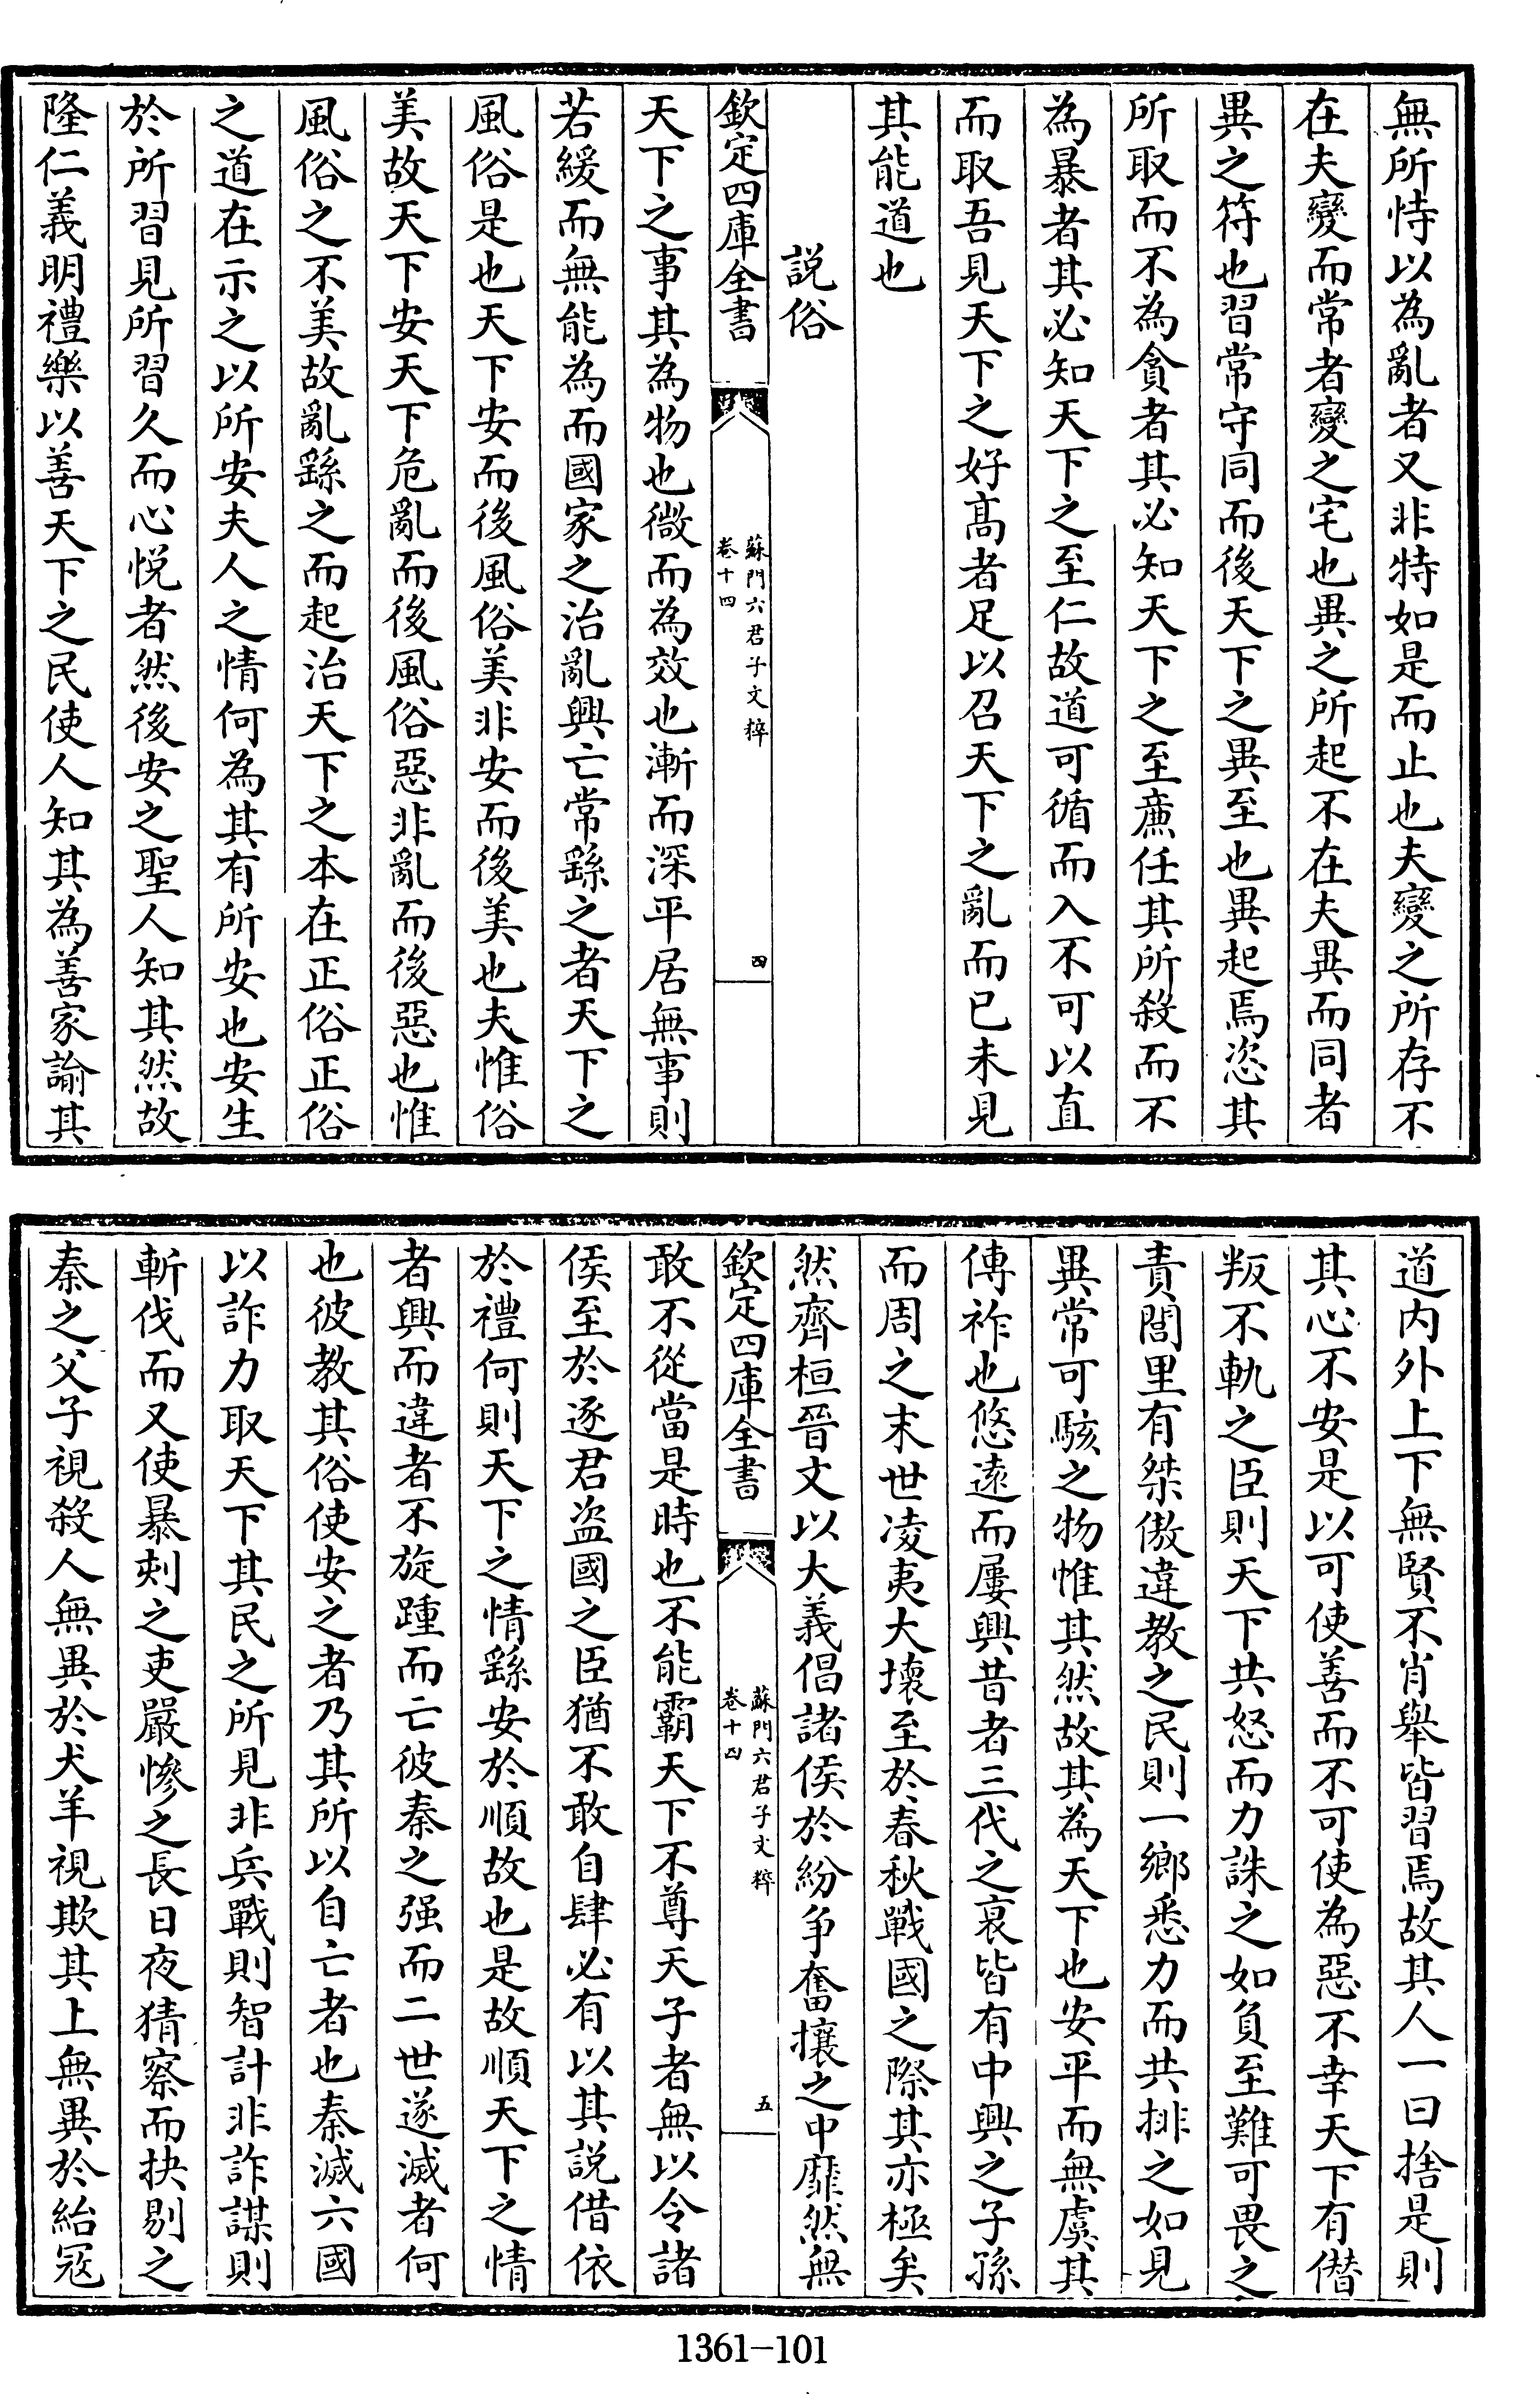 無所恃以為亂者又非特如是而止也夫變之所存不
在夫變而常者變之宅也異之所起不在夫異而同者
異之符也習常守同而後天下之異至也異起焉恣其
所取而不為貪者其必知天下之至廉任其所殺而不
為暴者其必知天下之至仁故道可循而入不可以直
而取吾見天下之好髙者足以召天下之亂而已未見
其能道也
說俗
欽定四庫全書
蘇門六君子文粹
卷十四
四
天下之事其為物也微而為效也漸而深平居無事則
若緩而無能為而國家之治亂興亡常繇之者天下之
風俗是也天下安而後風俗美非安而後美也夫惟俗
美故天下安天下危亂而後風俗惡非亂而後惡也惟
風俗之不美故亂繇之而起治天下之本在正俗正俗
之道在示之以所安夫人之情何為其有所安也安生
於所習見所習久而心悅者然後安之聖人知其然故
隆仁義明禮樂以善天下之民使人知其為善家諭其
道内外上下無賢不肖舉皆習焉故其人一日捨是則
其心不安是以可使善而不可使為惡不幸天下有僭
叛不軌之臣則天下共怒而力誅之如負至難可畏之
責閭里有桀傲違教之民則一鄉悉力而共排之如見
異常可駭之物惟其然故其為天下也安平而無虞其
傳祚也悠遠而屢興昔者三代之衰皆有中興之子孫
而周之末世凌夷大壞至於春秋戰國之際其亦極矣
然齊桓晉文以大義倡諸侯於紛爭奮攘之中靡然無
欽定四庫全書
蘇門六君子文粹
卷十四
五
敢不從當是時也不能霸天下不尊天子者無以令諸
侯至於逐君盗國之臣猶不敢自肆必有以其說借依
於禮何則天下之情繇安於順故也是故順天下之情
者興而違者不旋踵而亡彼秦之强而二世遂滅者何
也彼教其俗使安之者乃其所以自亡者也秦滅六國
以詐力取天下其民之所見非兵戰則智計非詐謀則
斬伐而又使暴刺之吏嚴慘之長日夜猜察而抉剔之
秦之父子視殺人無異於犬羊視欺其上無異於紿冦
1361-101